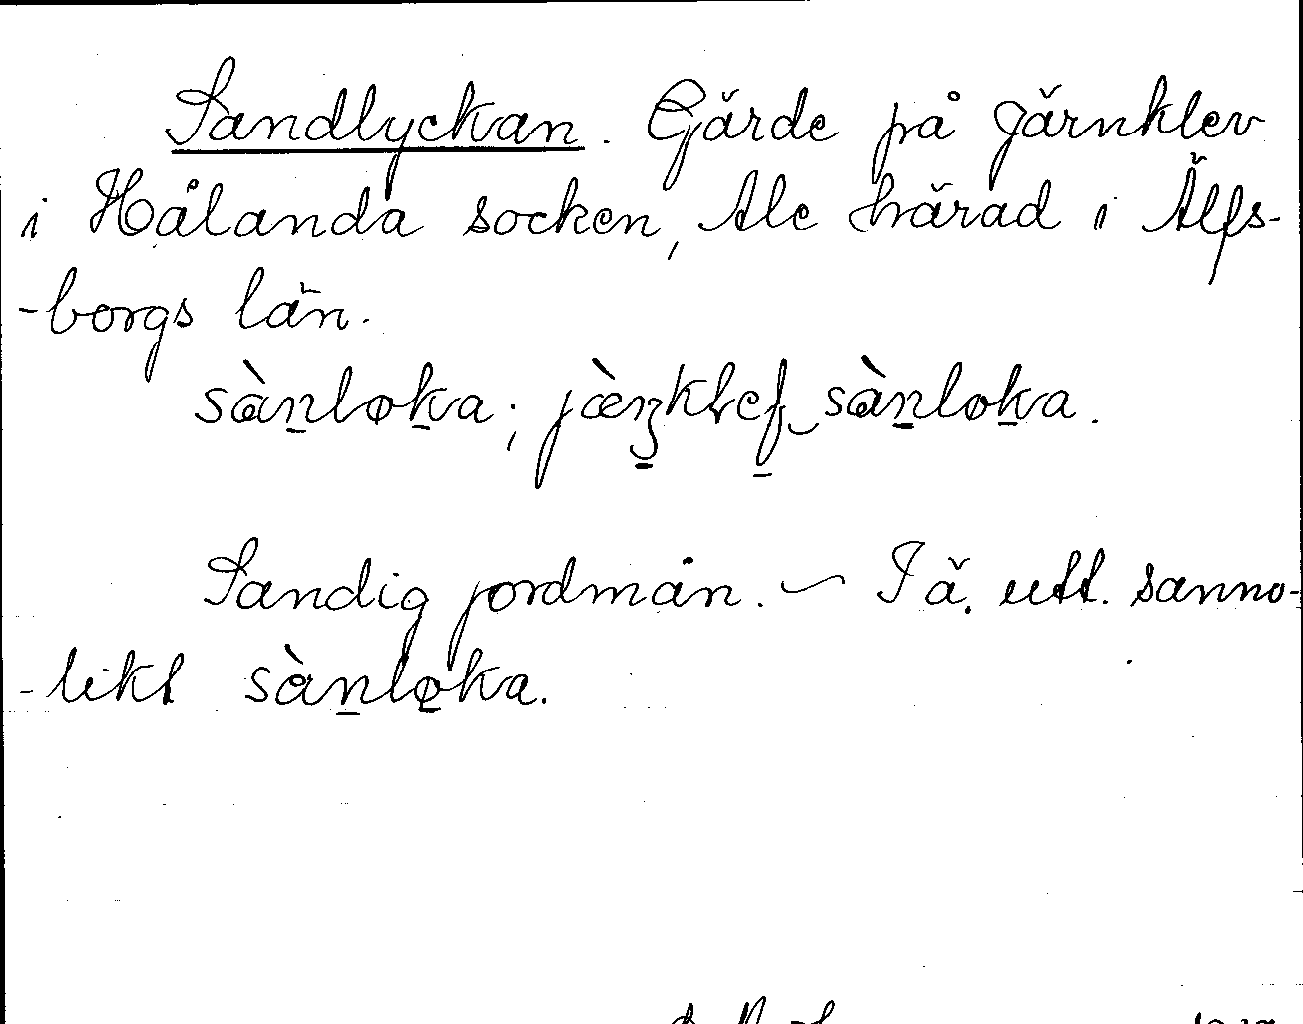 Sandlyckan. Gärde på Järnklev
i Hålanda socken, Ale härad i Älfs-
-borgs län.
sàn̠løk̠a; jæ̀n̠klef̠ ‿sàn̠løk̠a.
Sandig jordmån. ~ I ä. utt. sanno-
-likt sàn̠lø̠ka.